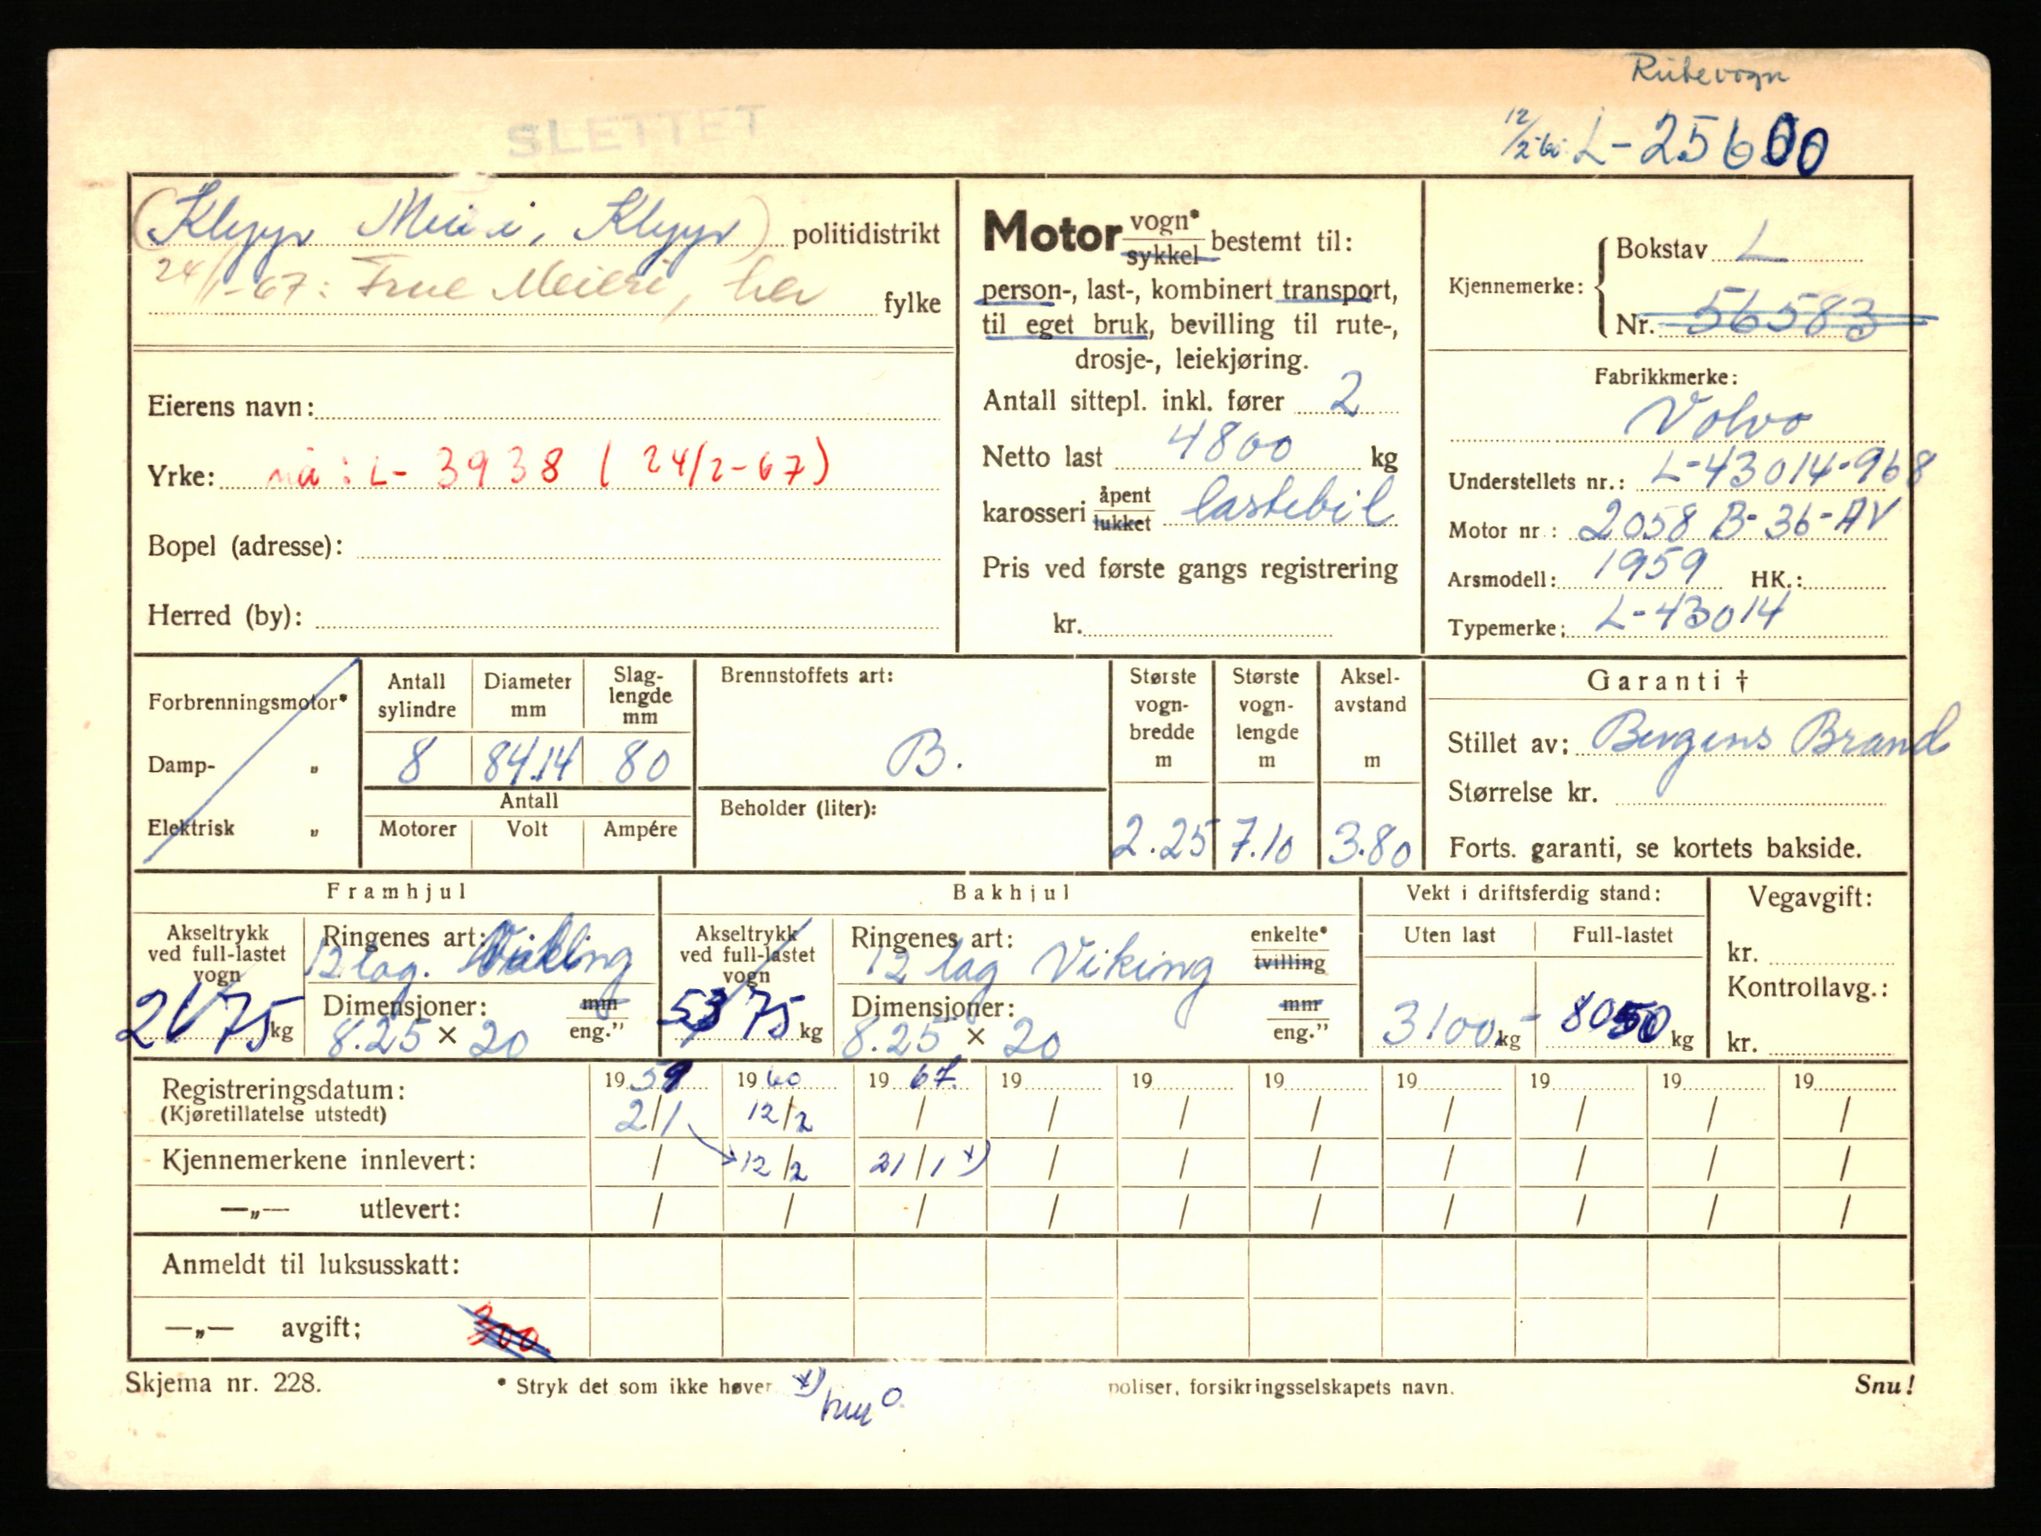 Rutevogn
12/2-60 L-25600
SLETTET
(Klepp Meieri, Klepp) politidistrikt
24/1-67: Frue Meieri, her fylke
Eierens navn:
Yrke: nå: L- 3938 ( 24/2-67)
Bopel (adresse):
Herred (by):
Motor vogn* sykkel bestemt til:
person-, last-, kombinert transport,
til eget bruk, bevilling til rute-,
drosje-, leiekjøring.
Antall sittepl. inkl. fører 2
Netto last 4800 kg
karosseri åpent lukket lastebil
Pris ved første gangs registrering
kr.
Kjennemerke: Bokstav L
Nr. 56583
Fabrikkmerke:
Volvo
Understellets nr.: L-43014-968
Motor nr: 2058 B-36-AV
Arsmodell: 1959 HK.:
Typemerke: L-43014
Forbrenningsmotor*
Damp- „
Elektrisk „
Antall sylindre 8
Diameter mm 84.14
Slaglengde mm 80
Antall
Motorer Volt Ampére
Brennstoffets art:
B.
Beholder (liter):
Største vogn-bredde m 2.25
Største vogn-lengde m 7.10
Aksel-avstand m 3.80
Garanti †
Stillet av: Bergens Brand
Størrelse kr.
Forts. garanti, se kortets bakside.
Framhjul
Akseltrykk ved full-lastet vogn 2675 kg
Ringenes art: 12 lag. Viking
Dimensjoner: mm
8.25 × 20 eng."
Bakhjul
Akseltrykk ved full-lastet vogn 5375 kg
Ringenes art: 12 lag Viking enkelte* tvilling
Dimensjoner: mm
8.25 × 20 eng."
Vekt i driftsferdig stand:
Uten last Full-lastet
3100 kg 8050 kg
Vegavgift:
kr.
Kontrollavg.:
kr.
Registreringsdatum: 1959 1960 1967 19 19 19 19 19 19 19
(Kjøretillatelse utstedt) 2/1 12/2 / / / / / / / /
Kjennemerkene innlevert: / 12/2 21/1 *) / / / / / / /
—„— utlevert: / / / / / / / / / /
Anmeldt til luksusskatt:
—„— avgift: 300
Skjema nr. 228. * Stryk det som ikke høver *) poliser, forsikringsselskapets navn. Snu!